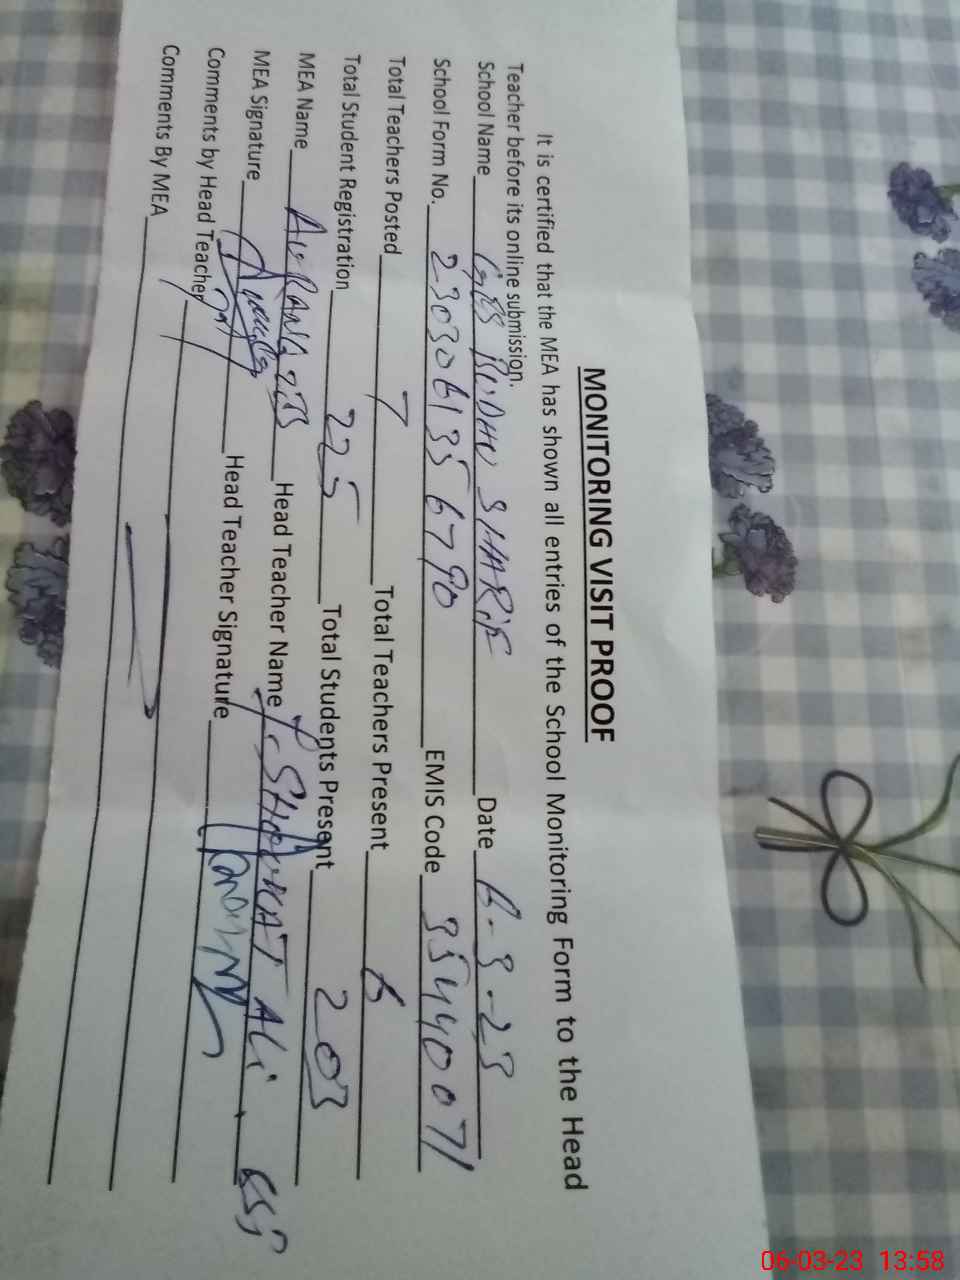 MONITORING VISIT PROOF
It is certified that the MEA has shown all entries of the School Monitoring Form to the Head
Teacher before its online submission.
School Name GES BUDHU SHARIF Date 6-3-23
School Form No. 2303061356790 EMIS Code 35440071
Total Teachers Posted 7 Total Teachers Present 6
Total Student Registration 225 Total Students Present 203
MEA Name AURANGZEB Head Teacher Name SHOUKAT ALI
MEA Signature Head Teacher Signature
Comments by Head Teacher
Comments By MEA
06-03-23 13:58